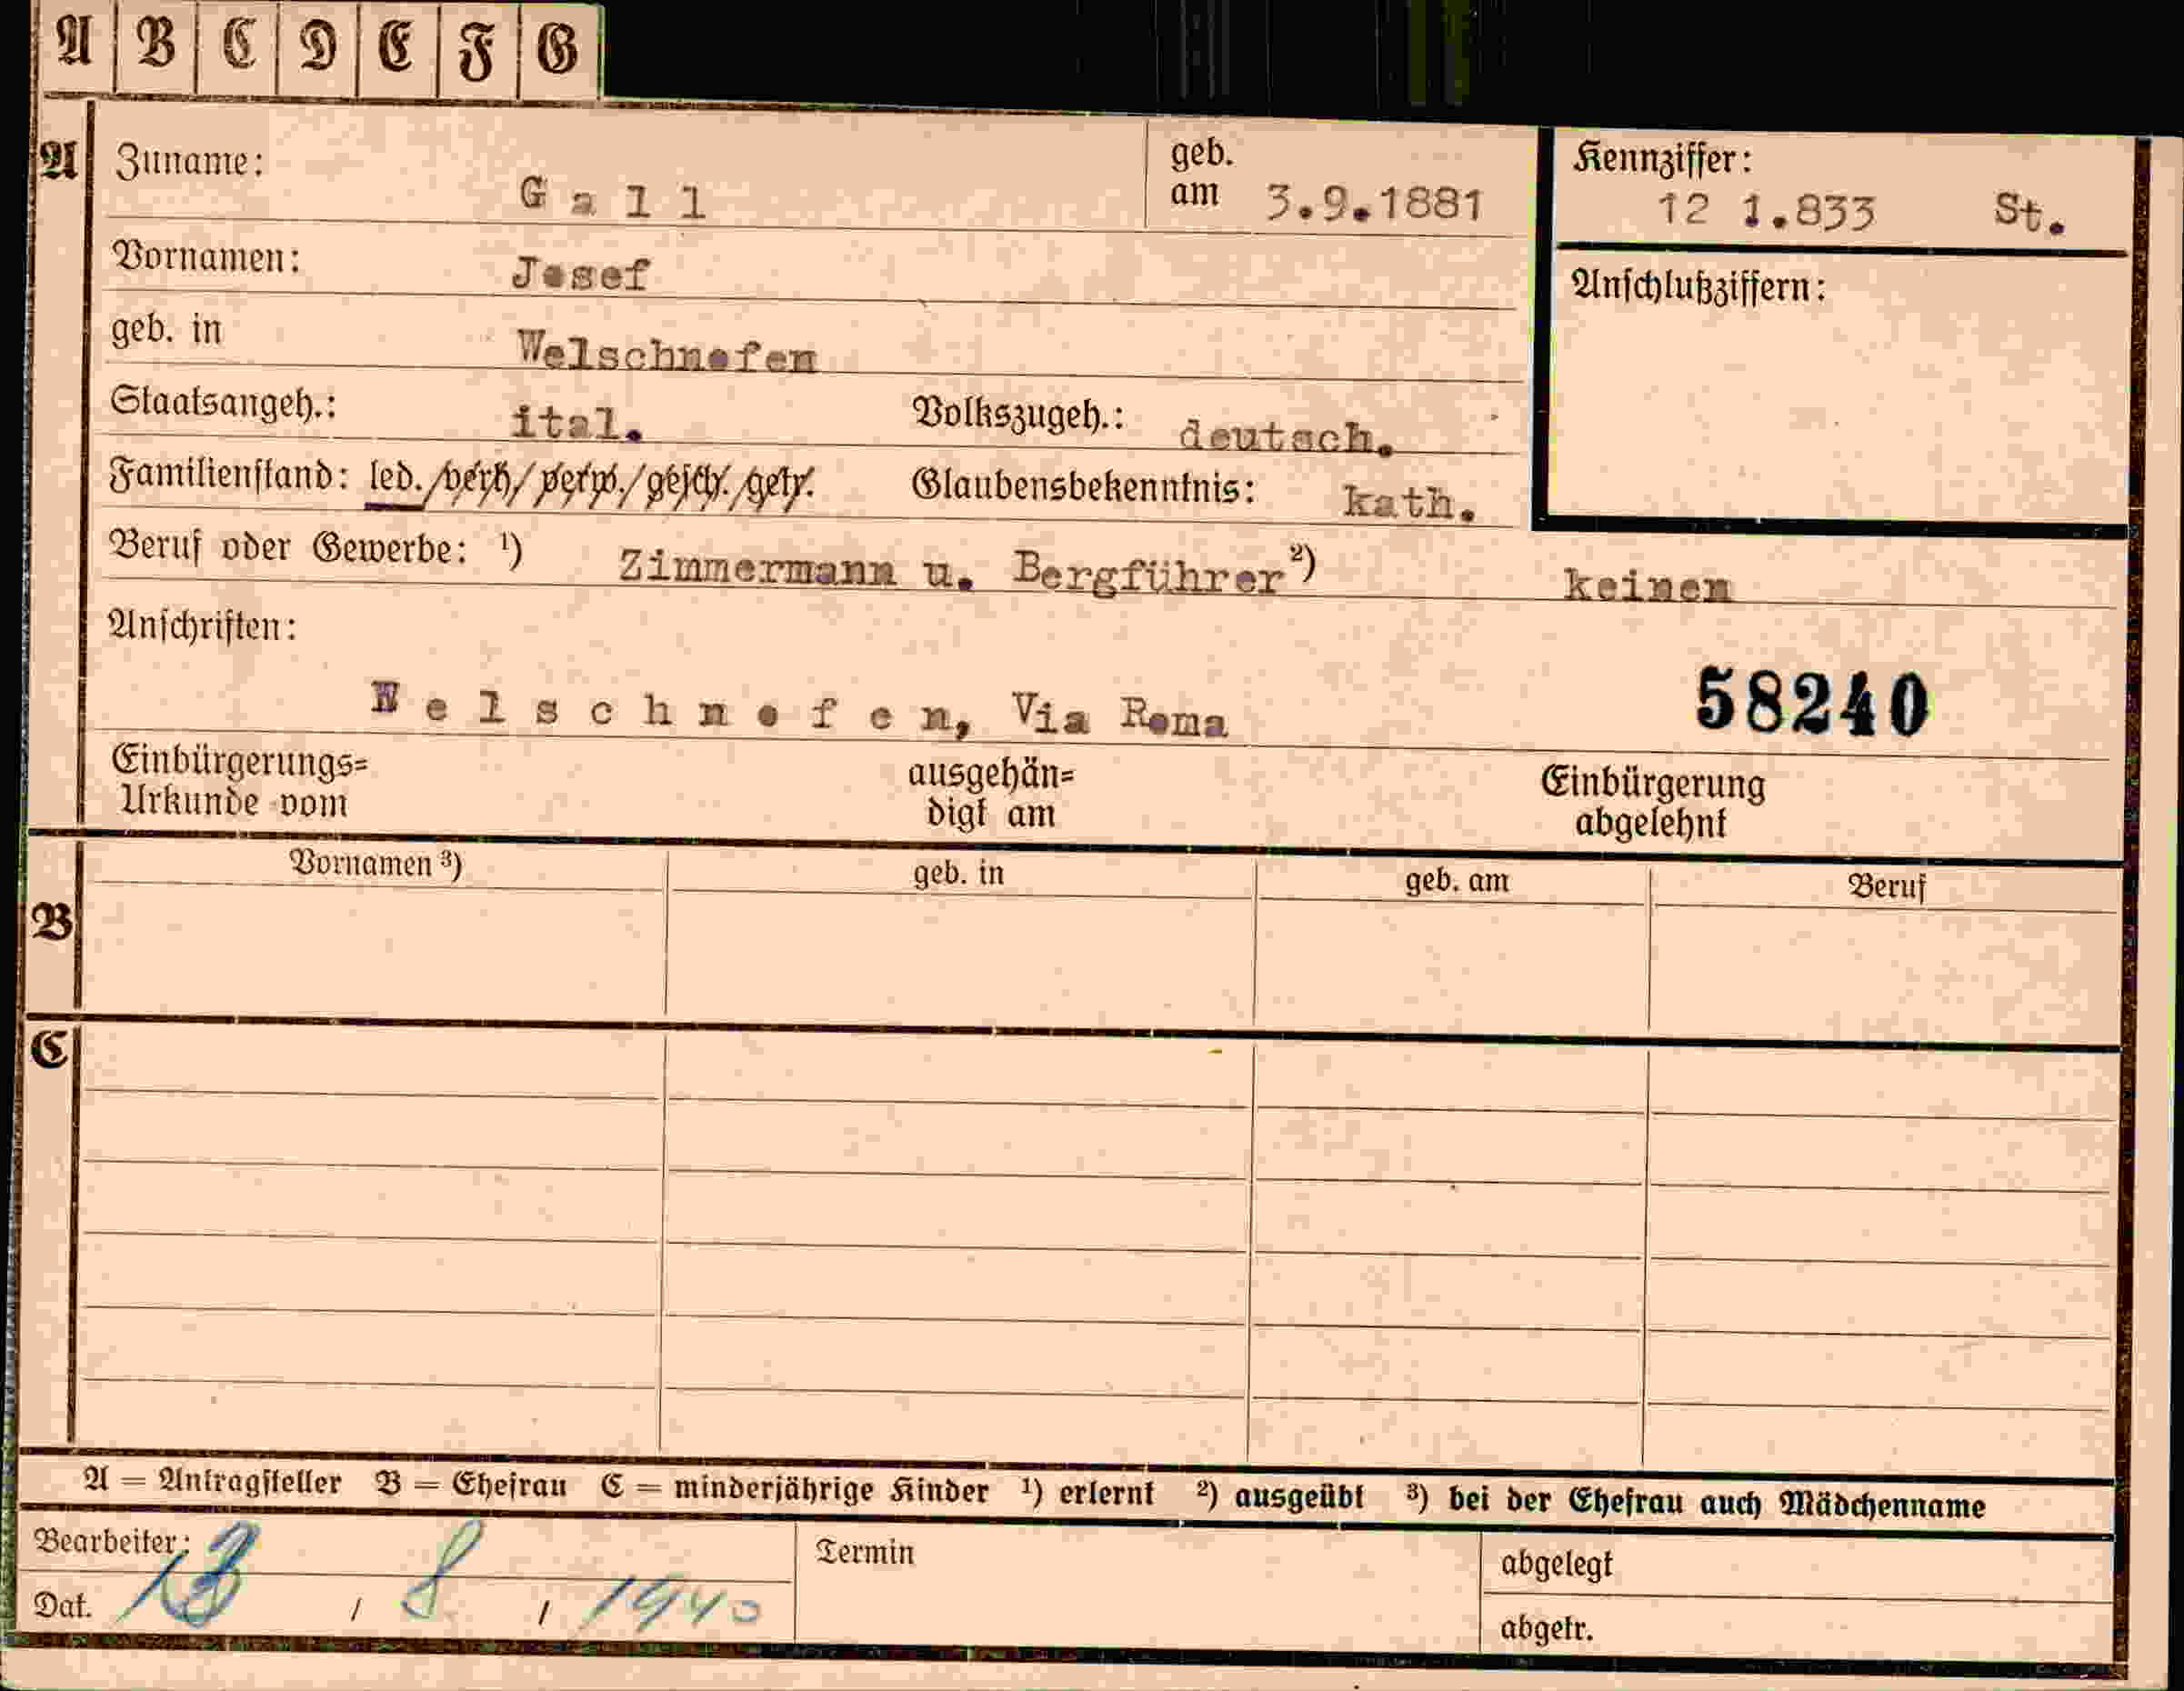 A B C D E F G
A Zuname: Gall geb. am 3.9.1881 Kennziffer: 12 1.833 St.
Vornamen: Josef Anschlußziffern:
geb. in Welschnofen
Staatsangeh.: ital. Volkszugeh.: deutsch.
Familienstand: led./verh/verw./gesch./getr. Glaubensbekenntnis: kath.
Beruf oder Gewerbe: ¹) Zimmermann u. Bergführer ²) keinen
Anschriften:
58240
Welschnofen, Via Roma
Einbürgerungs= ausgehän= Einbürgerung
Urkunde vom digt am abgelehnt
Vornamen ³) geb. in geb. am Beruf
B
C
A = Antragsteller B = Ehefrau C = minderjährige Kinder ¹) erlernt ²) ausgeübt ³) bei der Ehefrau auch Mädchenname
Bearbeiter: Termin abgelegt
Dat. 13 / 8 / 1940 abgetr.